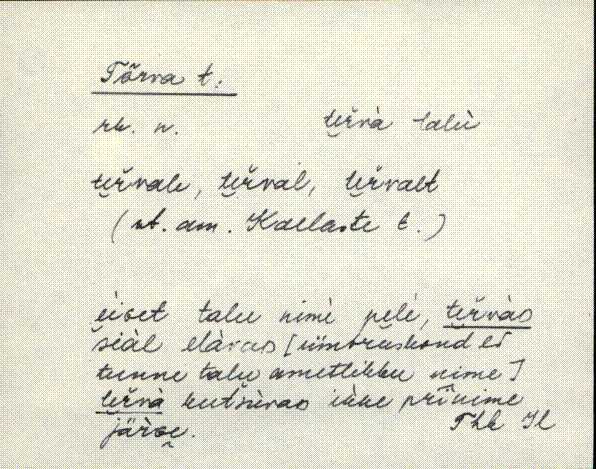 Tõrva t.
rk. n. te̮r̆và talù
te̮r̆vale, te̮r̆val, te̮r̆valt
(vt. am. Kaelaste t.)
èiset talu nimè pelè, te̮r̆vàs
šiàl elàvas [ümbruskond ei
tunne talu ametlikku nime]
te̮r̆và kutsùvas ikke prīnime
järge̮. Thk Il